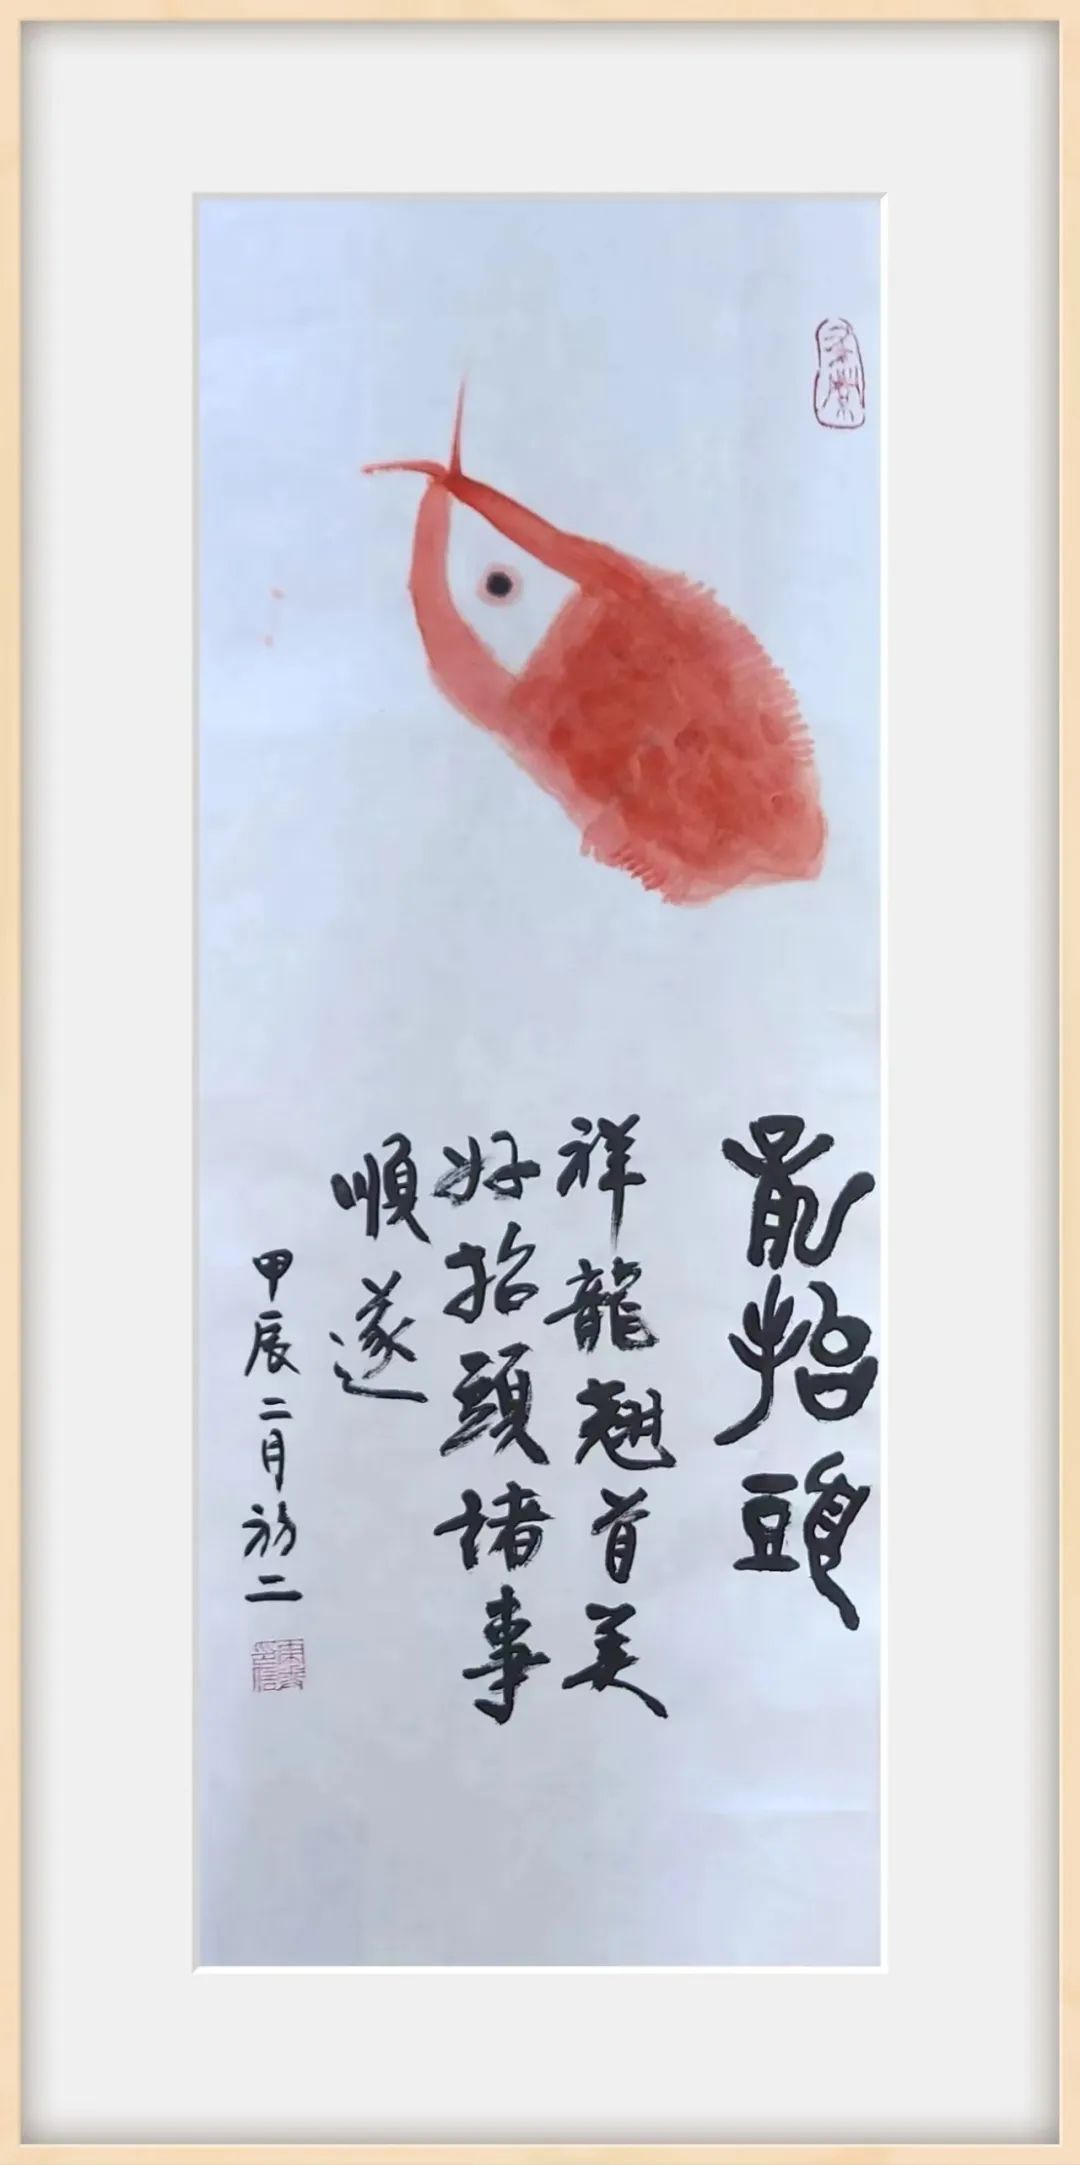 龍抬頭
祥龍翹首美
好抬頭諸事
順遂
甲辰二月初二